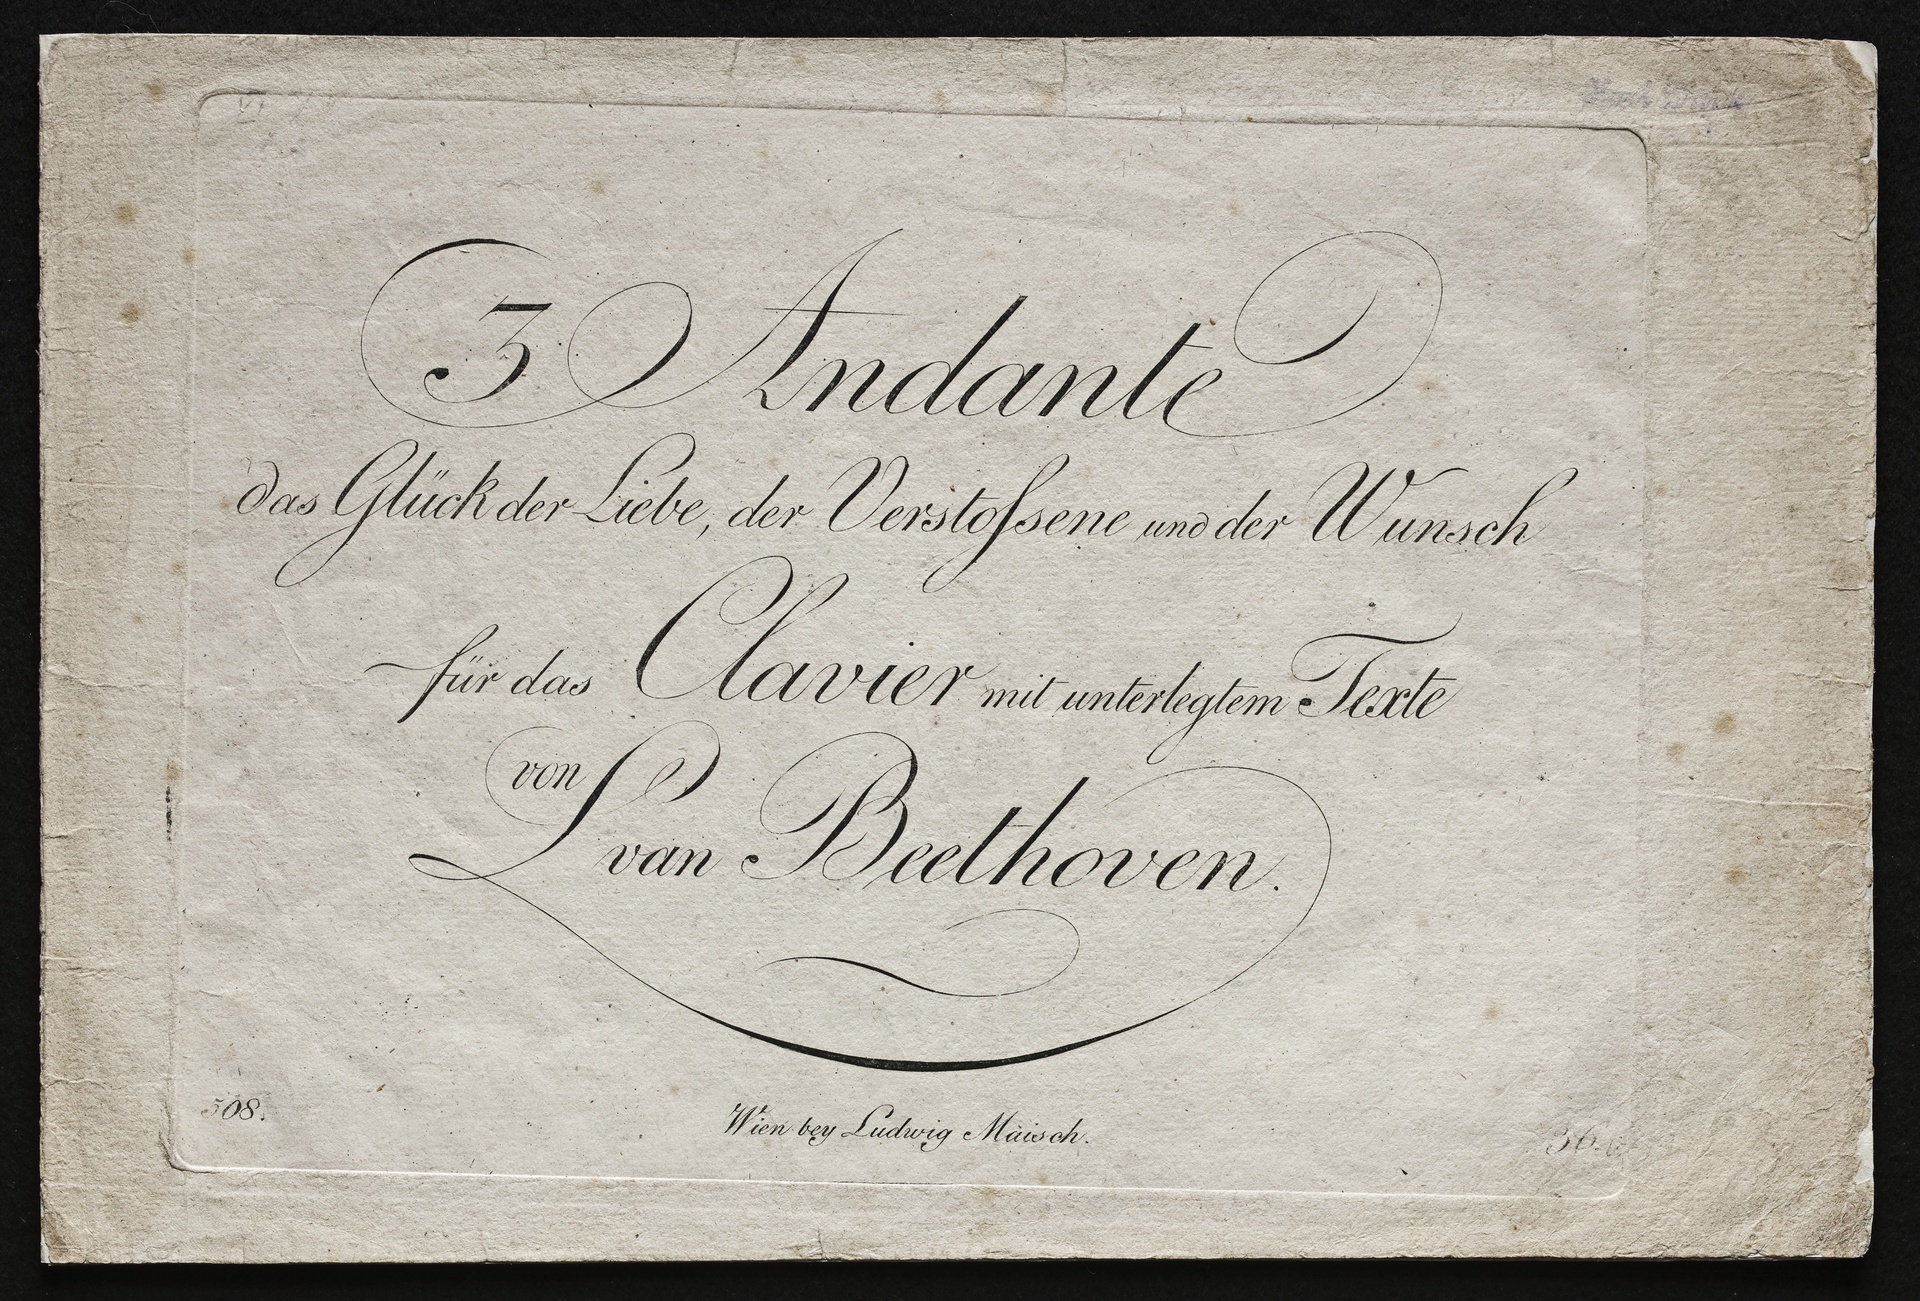 3 Andante
das Glück der Liebe, der Verstoſsene und der Wunsch
für das Clavier mit unterlegtem Texte
von
L van Beethoven.
508.
Wien bey Ludwig Maisch.